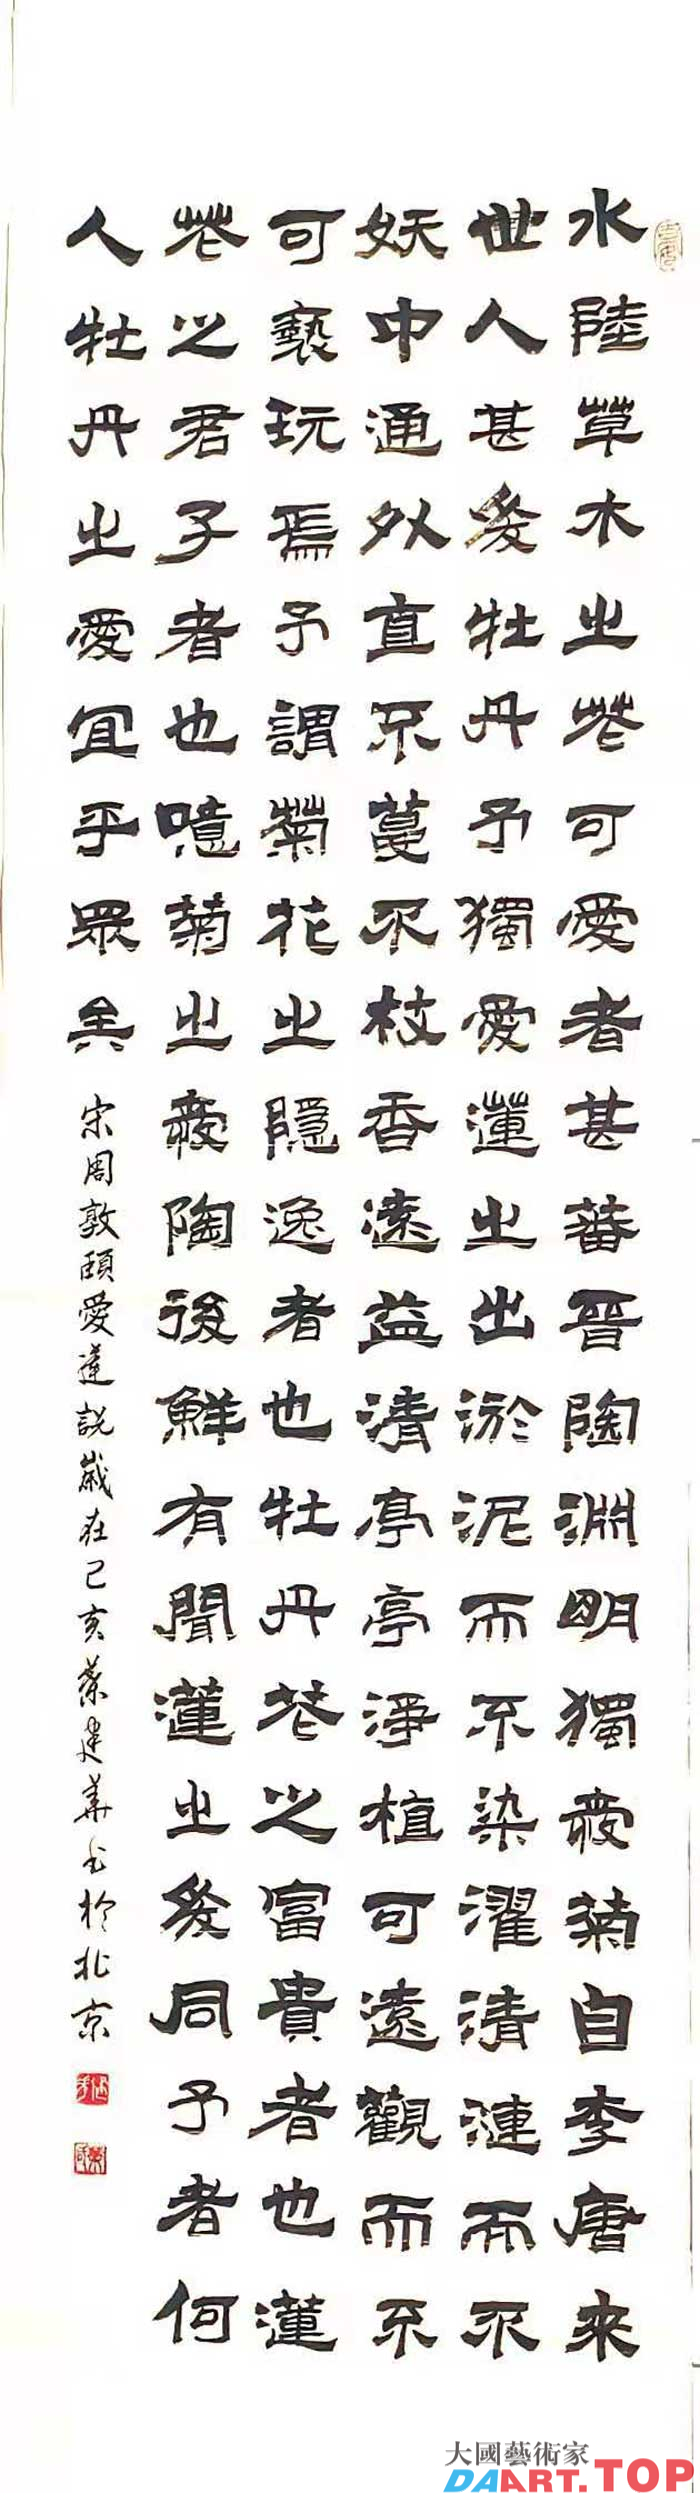 水陸草木之花可愛者甚蕃晉陶淵明獨愛菊自李唐来
世人甚愛牡丹予獨愛蓮之出淤泥而不染濯清漣而不
妖中通外直不蔓不枝香遠益清亭亭淨植可遠觀而不
可褻玩焉予謂菊花之隱逸者也牡丹花之富貴者也蓮
花之君子者也噫菊之愛陶後鮮有聞蓮之愛同予者何
人牡丹之愛宜乎眾矣 宋周敦頤愛蓮說歲在己亥葉建華书於北京
大國藝術家
DAART.TOP